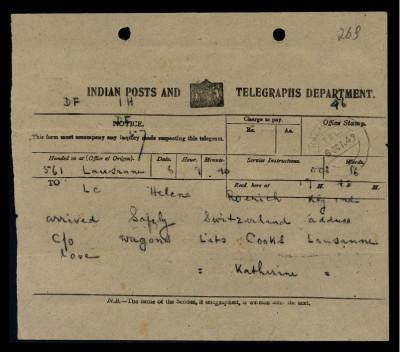 269
INDIAN POSTS AND TELEGRAPHS DEPARTMENT.
DF 1H 46
NOTICE.
This form must accompany any inquiry made respecting this telegram.
Charge to pay.
Rs. As.
Office Stamp.
Handed in at (Office of Origin). Date. Hour. Minute. Service Instructions. Words.
561 Lausanne 6 16
TO Recd. here at
Lc Helene Roerich
arrived Safely Switzerland address
C/o wagons Lits Cooks Lausanne
Love
= Katherine =
N.B.—The name of the Sender, if telegraphed, is written after the text.